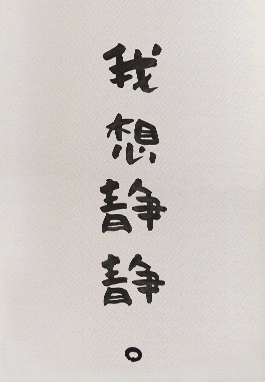 我想静静。